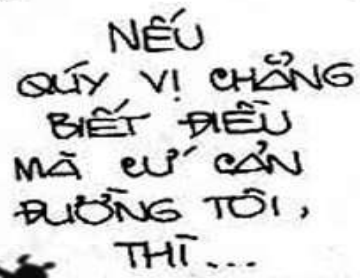 NẾU
QUÝ VỊ CHẲNG
BIẾT ĐIỀU
MÀ CỨ CẢN
ĐƯỜNG TÔI,
THÌ...